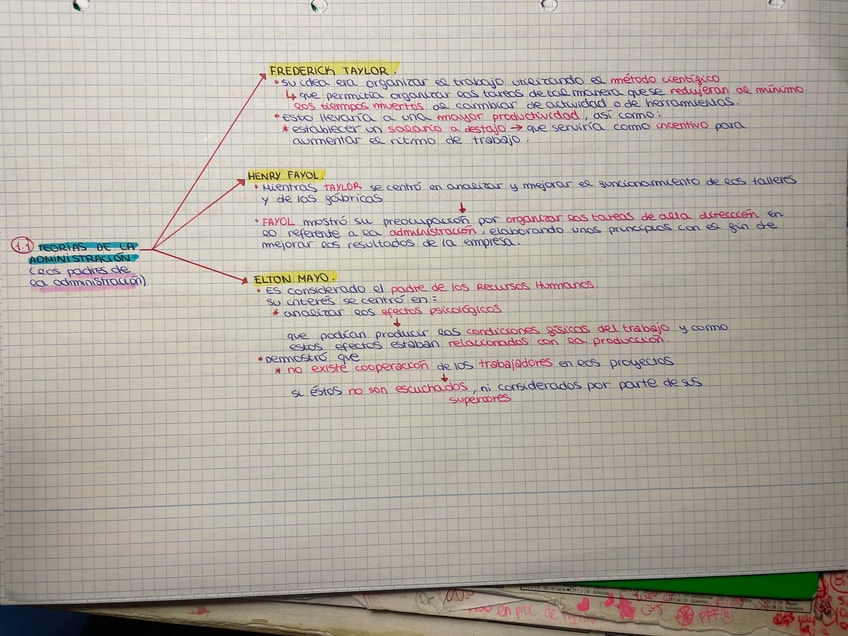 1.1 TEORÍAS DE LA
ADMINISTRACIÓN.
(los padres de
la administración)
FREDERICK TAYLOR.
• su idea era organizar el trabajo utilizando el método científico
↳ que permitía organizar las tareas de tal manera que se redujeran al mínimo
los tiempos muertos de cambiar de actividad o de herramientas.
• esto llevaría a una mayor productividad, así como:
* establecer un salario a destajo → que serviría como incentivo para
aumentar el ritmo de trabajo.
HENRY FAYOL.
• Mientras TAYLOR se centró en analizar y mejorar el funcionamiento de los talleres
y de las fábricas
↓
• FAYOL mostró su preocupación por organizar las tareas de alta dirección en
lo referente a la administración, elaborando unos principios con el fin de
mejorar los resultados de la empresa.
ELTON MAYO.
• Es considerado el padre de los Recursos Humanos.
su interés se centró en:
* analizar los efectos psicológicos
↓
que podían producir las condiciones físicas del trabajo y como
estos efectos estaban relacionados con la producción.
• Demostró que
* no existe cooperación de los trabajadores en los proyectos
↓
si éstos no son escuchados, ni considerados por parte de sus
superiores